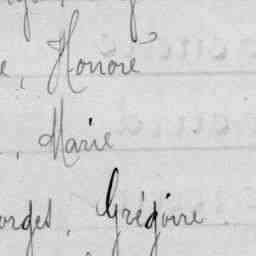 e, Honoré
, Marie
orges, Grégoire